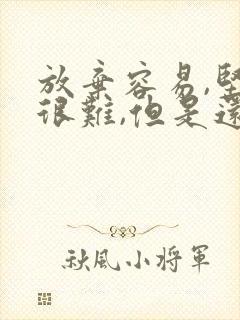 放棄容易,堅
很難,但是還
秋風小將軍